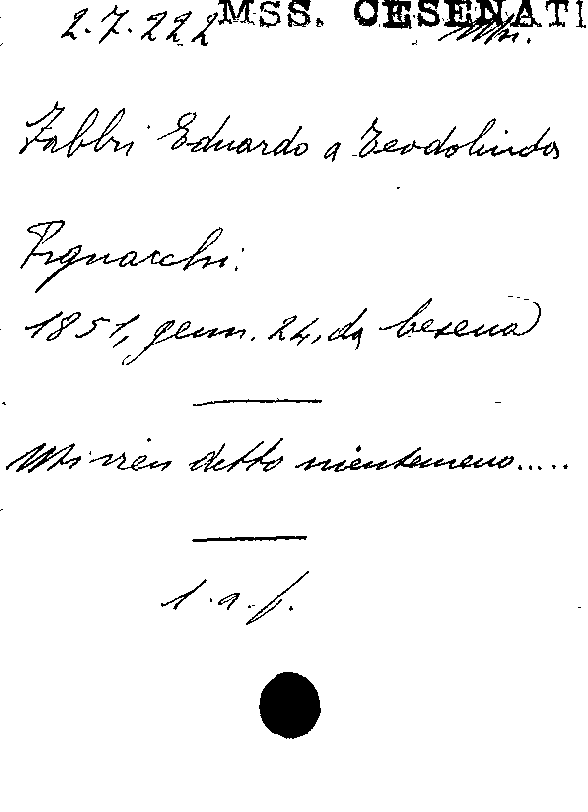 2.7.222 MSS. CESENATI
Fabbri Eduardo a Teodolinda
Pignarchi:
1851, genn. 24, da Cesena
Mi vien detto nientemeno.....
l.a.f.